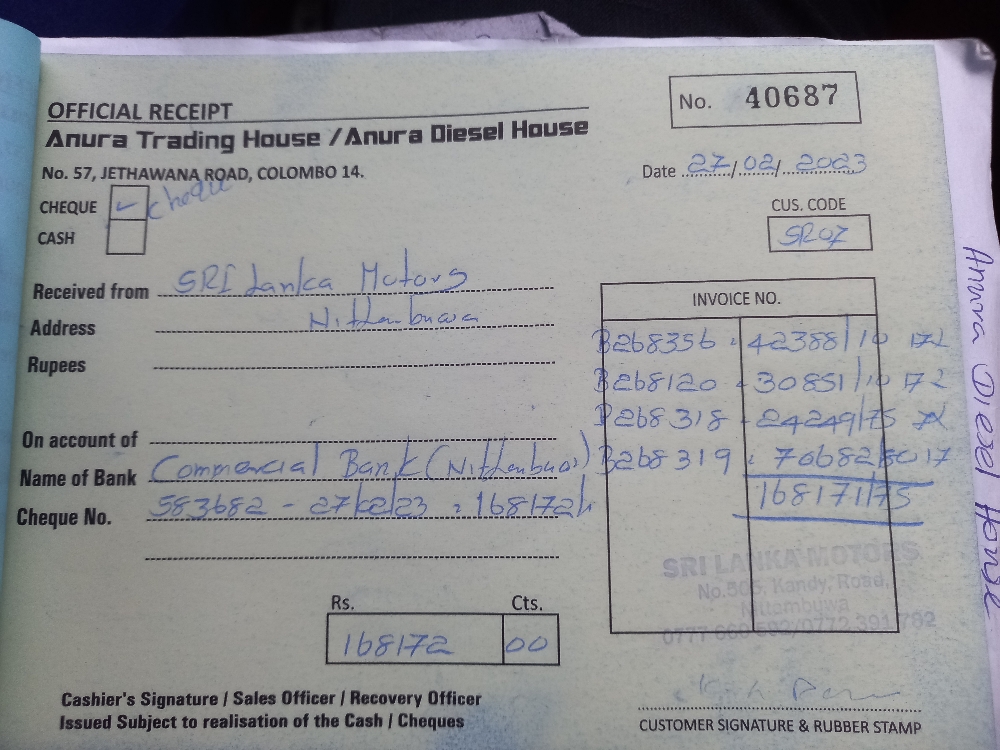 OFFICIAL RECEIPT
No. 40687
Anura Trading House / Anura Diesel House
No. 57, JETHAWANA ROAD, COLOMBO 14.
Date 27/02/2023
CHEQUE cheque
CASH
CUS. CODE
SR07
Received from SRI Lanka Motors
Address Nittambuwa
Rupees
On account of
Name of Bank Commercial Bank (Nittambuwa)
Cheque No. 583682 - 27/02/23 = 168172/-
INVOICE NO.
B268356 - 42388/10 172
B268120 - 30851/10 172
B268318 - 24249/75
B268319 - 70682/80 17
168171/75
SRI LANKA MOTORS
No.505, Kandy, Road,
Nittambuwa
Rs. Cts.
168172 00
Cashier's Signature / Sales Officer / Recovery Officer
Issued Subject to realisation of the Cash / Cheques
CUSTOMER SIGNATURE & RUBBER STAMP
Anura Diesel House